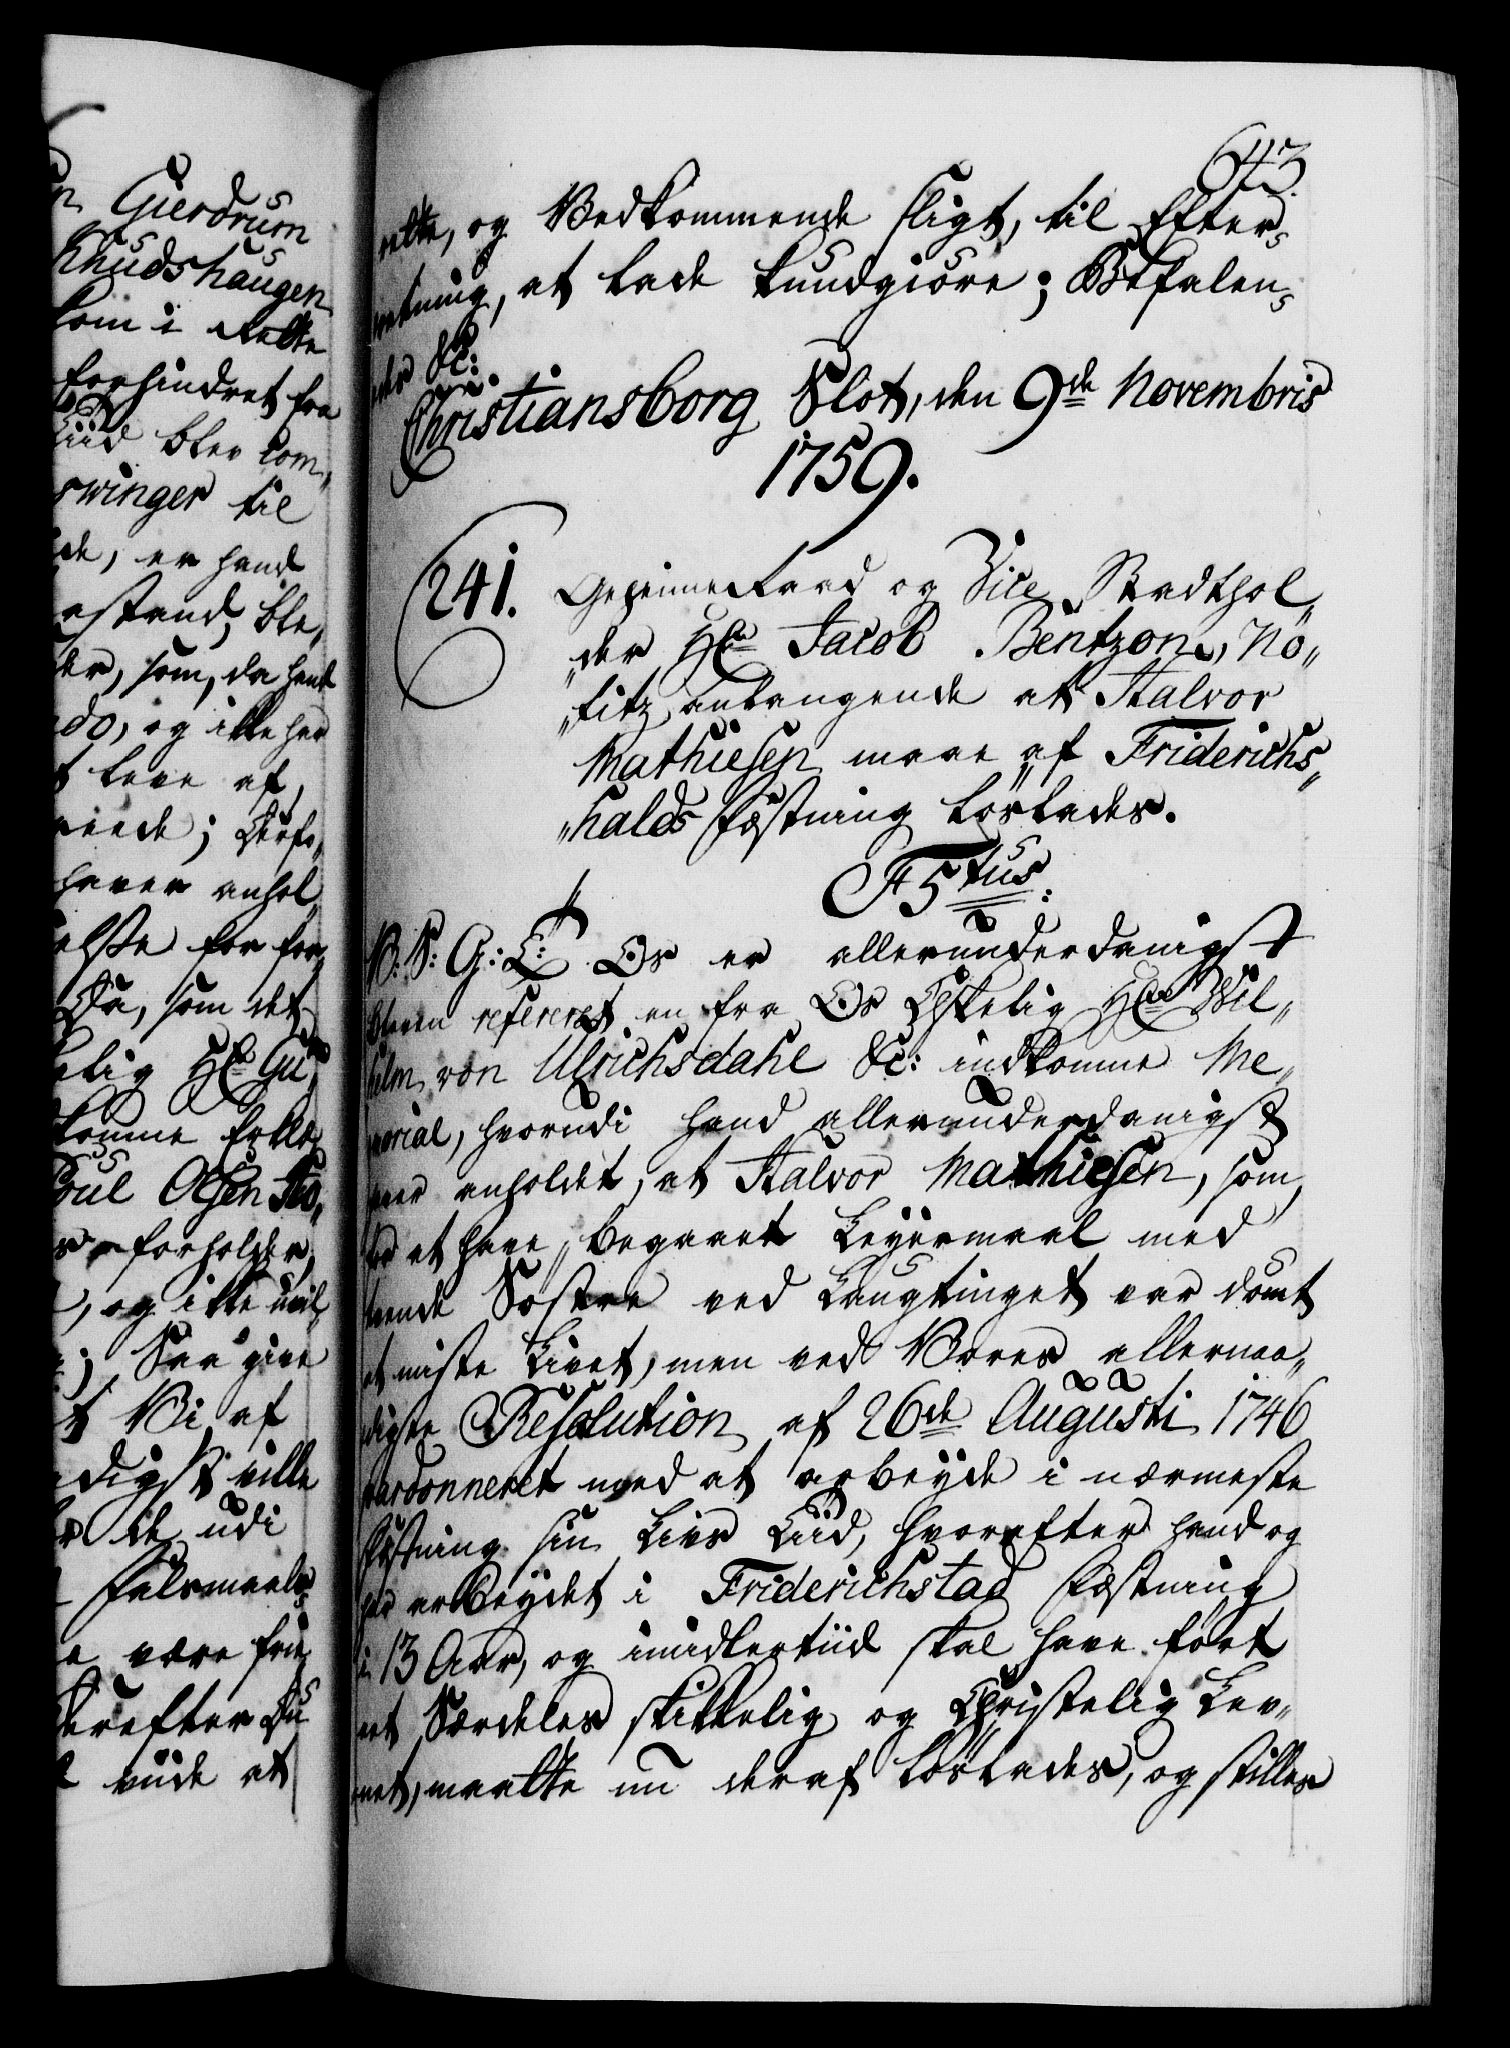 n Gierdrum
Knudshaugen
kom i Rette
forhindret fra
Tiid blev com„
swinger til
de, er hand
astand; ble„
der, som, da hand
do, og ikke har
t leve af,
haver anhol„
else for for„
Da, som det
elig Hr. Gu„
komme Erklæ„
Poul Olsen
forholder,
, og ikke
; Saa give
t Vi af
digst ville
de udi
Falsmaals
e være frie
derefter Du
viide at
643.
rette, og Vedkommende sligt, til Efter„
retning, at lade kundgiøre; Befalen„
der &c:
Christiansborg Slot, den 9de Novembris
1759.
241. Geheimeraad og Vice Stadthol„
„der Hr. Jacob Bentzon, No„
„titz anlangende at Halvor
Mathiesen maae af Friderichs„
„halds Fæstning løslades.
F 5tus.
V: S: G: T: Os er allerunderdanigst
bleven refereret en fra Os Elskelig Hr. Wil„
helm von Ulrichsdahl &c: indkomme Me„
morial, hvorudi hand allerunderdanigst
haver anholdet, at Halvor Mathiesen, som,
for at have begaaet Leyermaal med
tvende Søstre ved Laugtinget var dømt
at miste Livet, men ved Vores allernaa„
digste Resolution af 26de Augusti 1746
pardonneret med at arbeyde i nærmeste
Fæstning sin Livs Tiid, hvorefter hand og
har arbeydet i Friderichstad Fæstning
i 13 Aar, og imidlertiid skal have ført
et Særdeles skikkelig og Christelig Lev„
net, maatte nu deraf løslades, og stilles